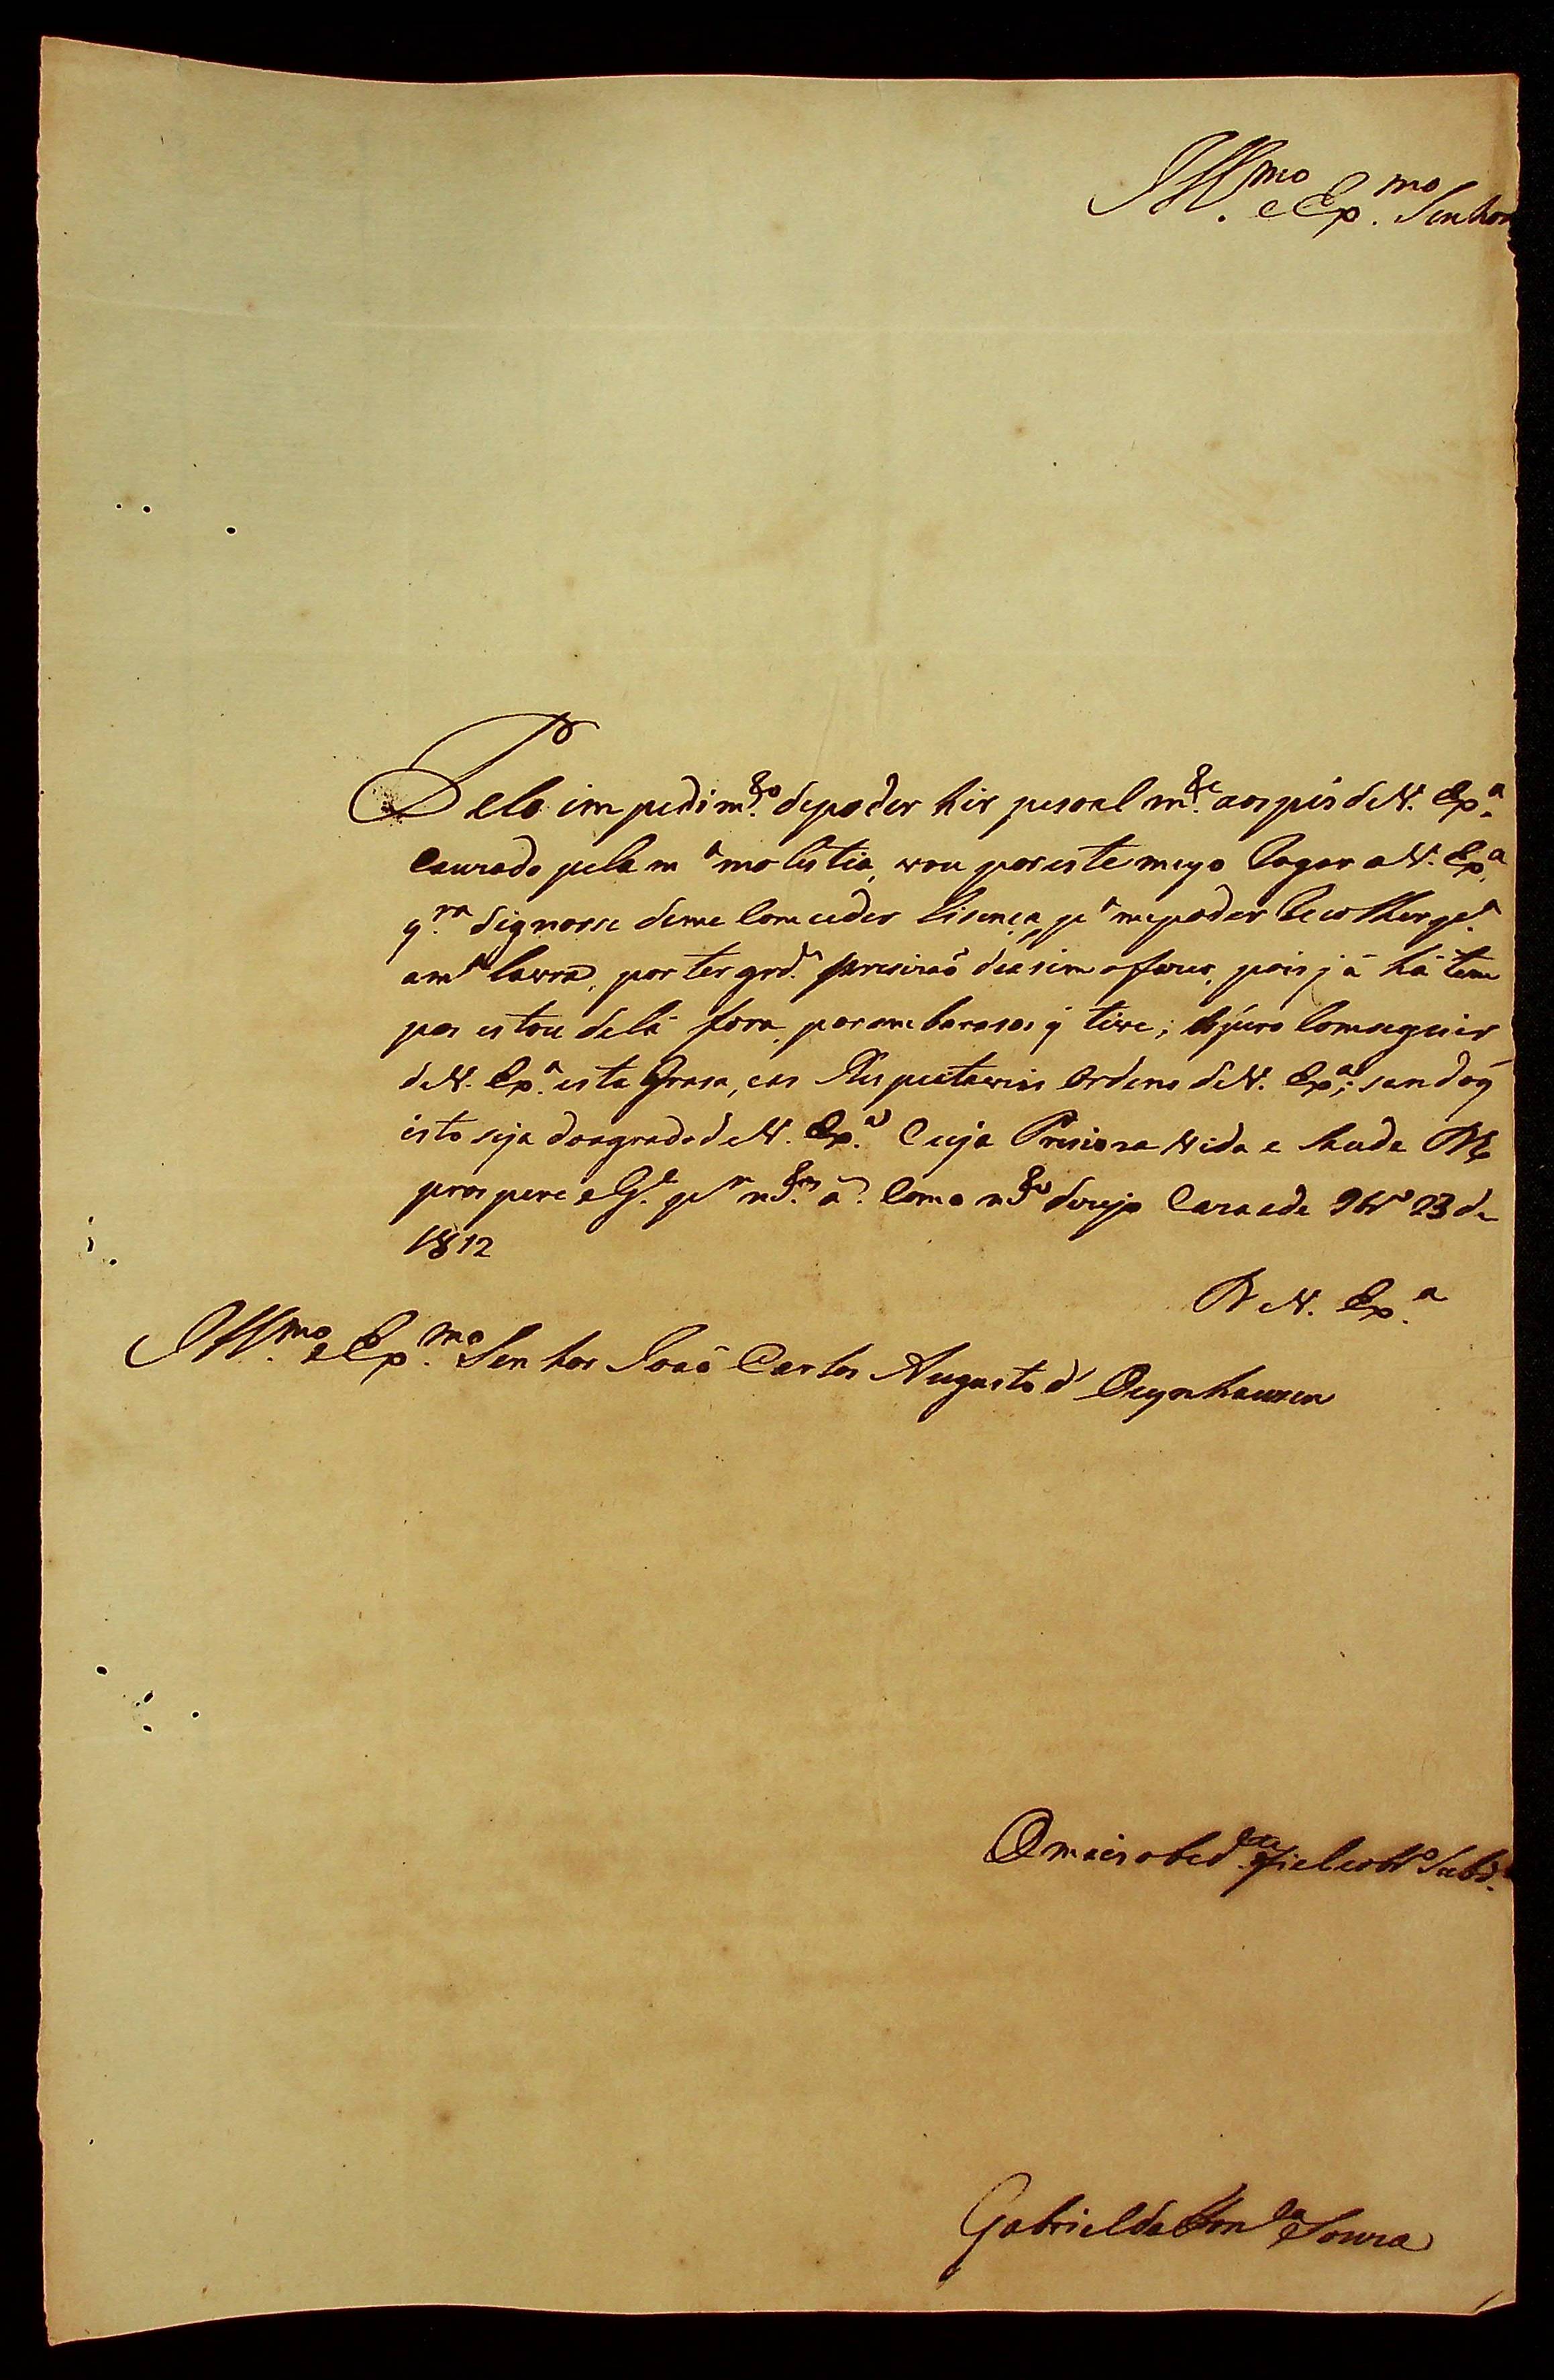 Ill.mo e Ex.mo Senhor
Pelo impedim.to depoder hir pesoal m.te aos pés de V. Ex.a
Cauzado pela m.a molestia, vou por este meyo Rogar a V. Ex.a
q.ra dignarse deme Comceder Lisença p.a mepoder Recolher p.a
am.a Lavra, por ter grd.e presizaõ deasim ofazer, pois já há tem
pos estou delá fora, por ambarasos q̃ tive; espero Comseguir
de V. Ex.a esta Grasa, e as Respeitaveis Ordens de V. Ex.a; sendo q̃
isto seja doagrado de V. Ex.a Cuja Presioza Vida e Saude Ds
prospere e G.e p.r m.tos a.s Como m.to dezejo Caza e de 9br.o 23 de
1812
De V. Ex.a
Ill.mo e Ex.mo Senhor Joaõ Carlos Augusto d' Oeynhausen
Omais obed.te fiel eobr.o Subd.o
Gabriel da Fon.ca e Souza